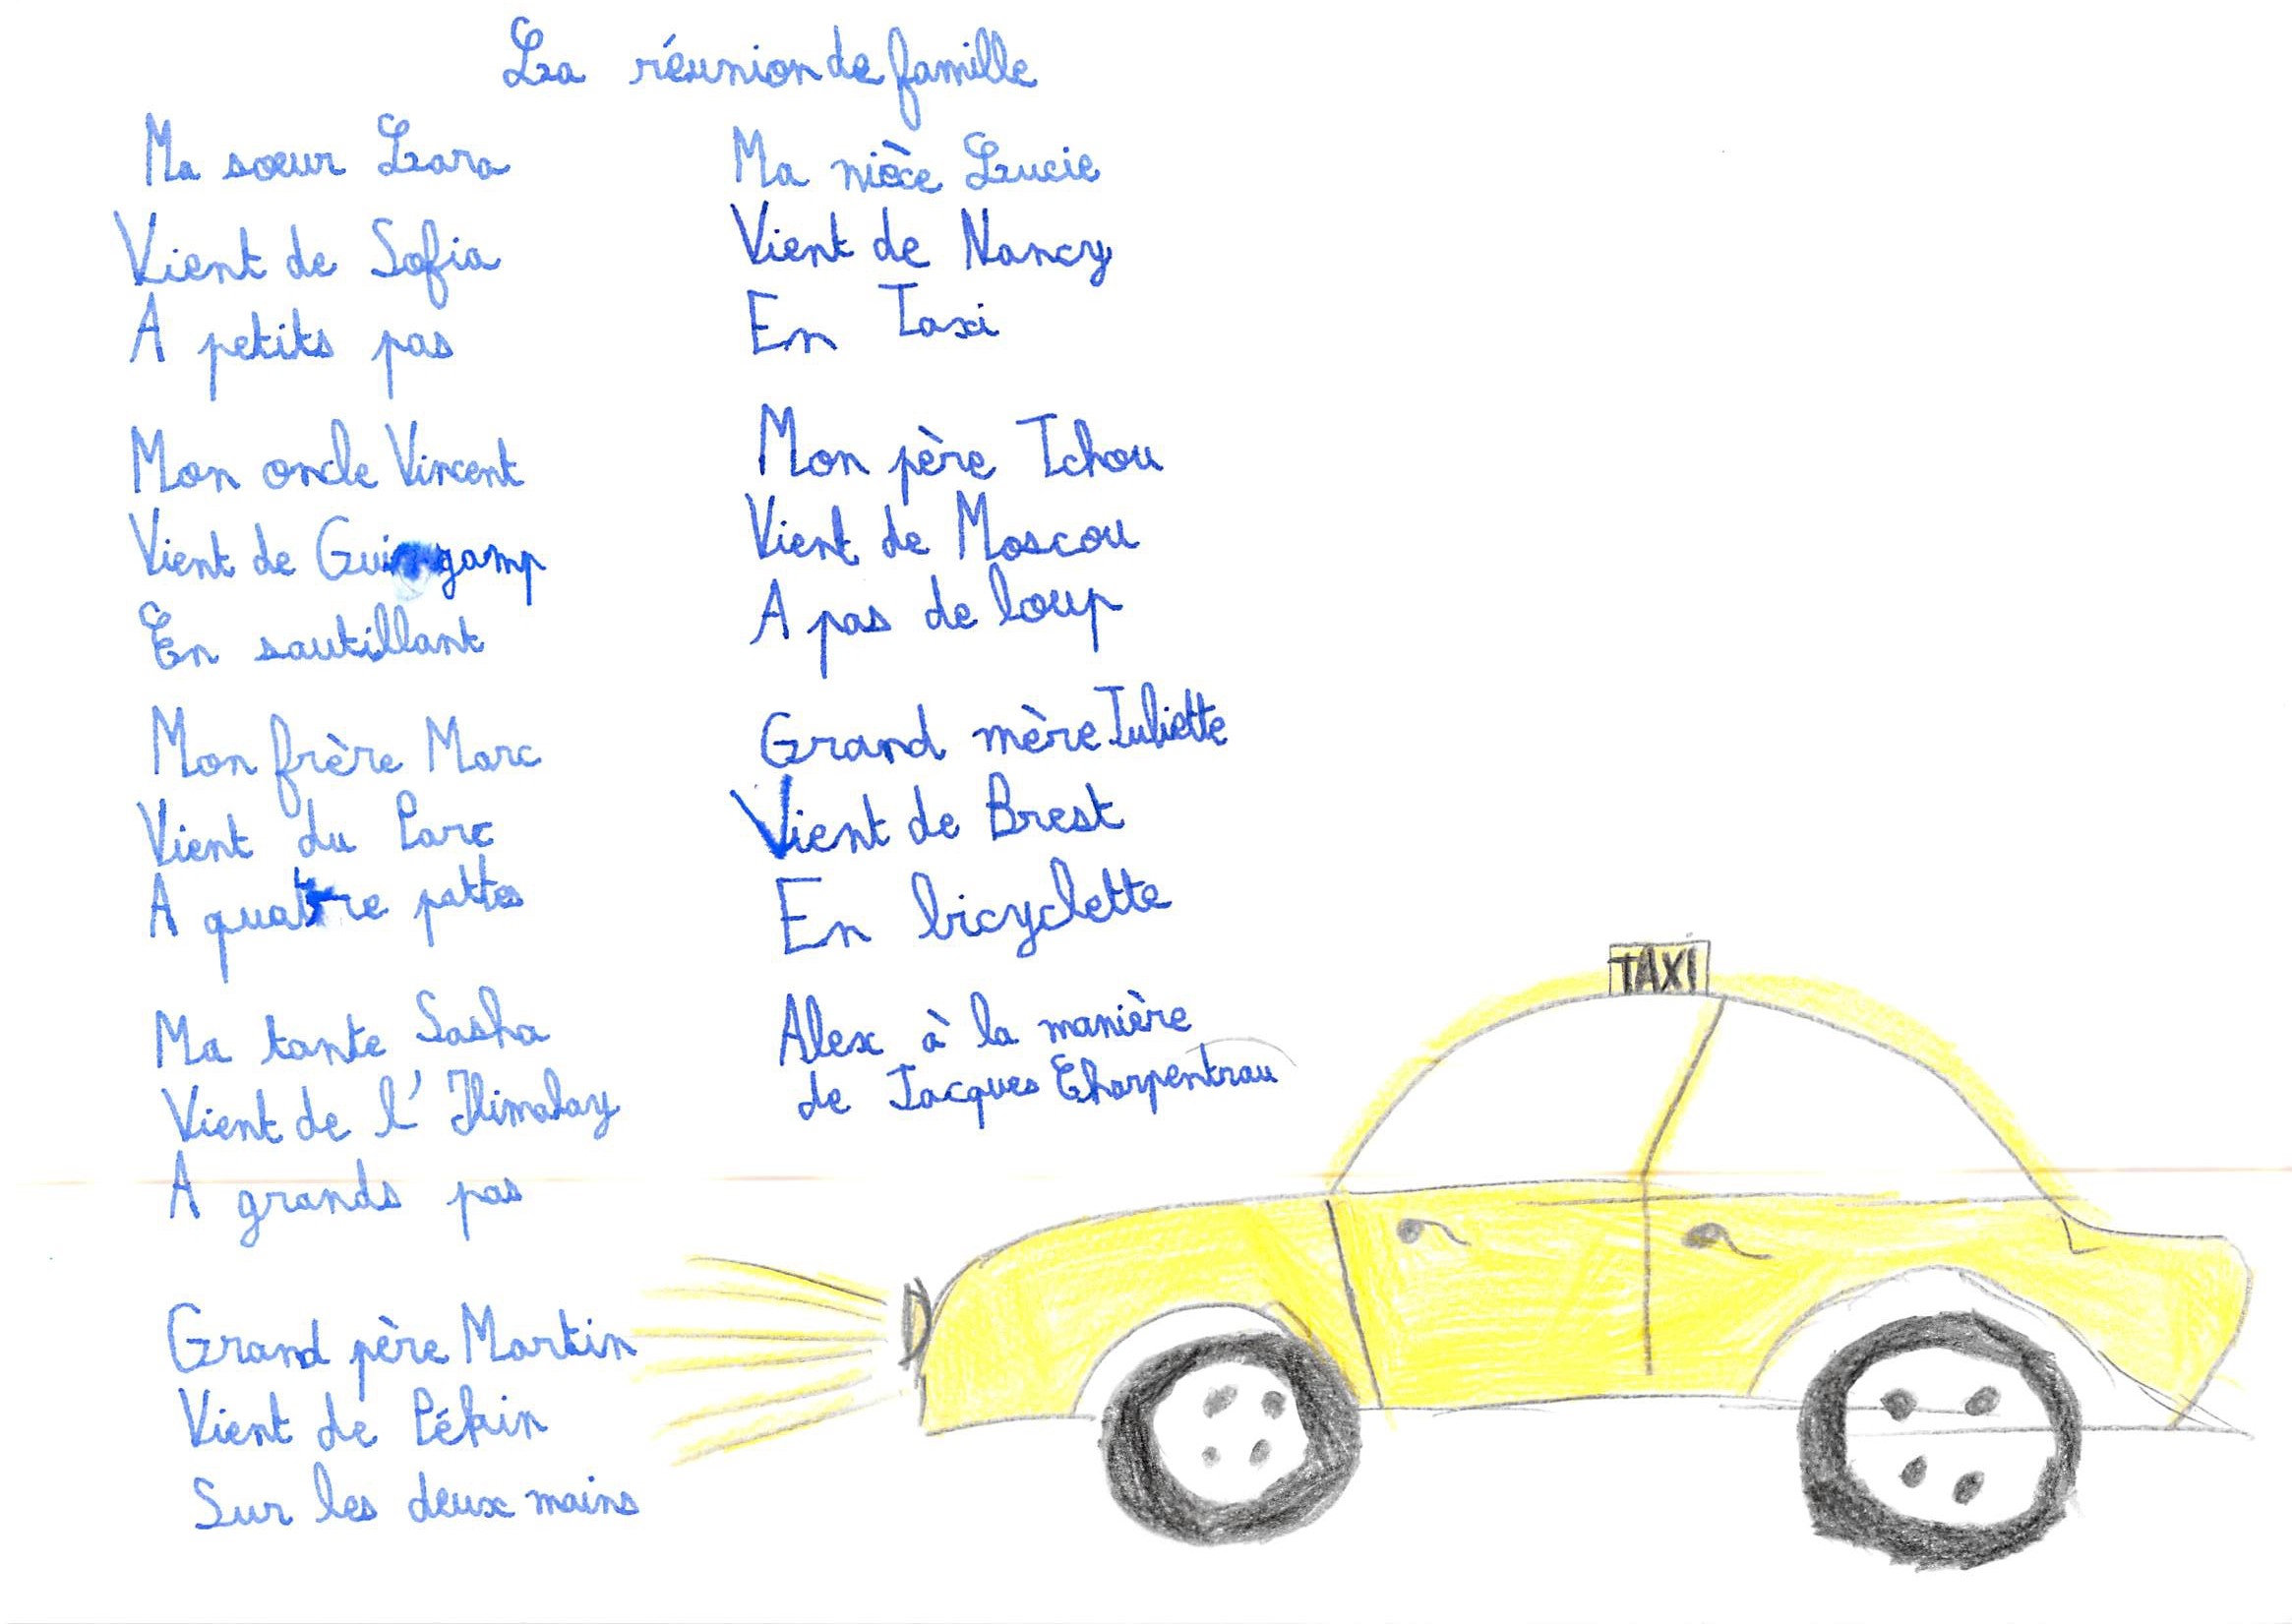 La réunion de famille
Ma sœur Lara
Vient de Sofia
A petits pas
Mon oncle Vincent
Vient de Guingamp
En sautillant
Mon frère Marc
Vient du Parc
A quatre pattes
Ma tante Sasha
Vient de l'Himalay
A grands pas
Grand père Martin
Vient de Pékin
Sur les deux mains
Ma nièce Lucie
Vient de Nancy
En Taxi
Mon père Tchou
Vient de Moscou
A pas de loup
Grand mère Juliette
Vient de Brest
En bicyclette
Alex à la manière
de Jacques Charpentrau
TAXI